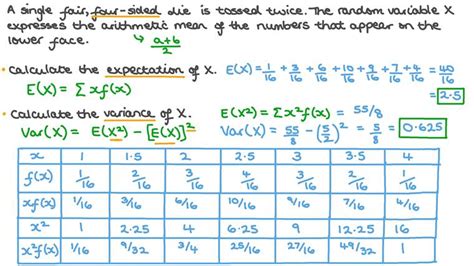 A single fair, four-sided die is tossed twice. The random variable X
expresses the arithmetic mean of the numbers that appear on the
lower face. ↳ a+b/2
• Calculate the expectation of X. E(X) = 1/16 + 3/16 + 6/16 + 10/16 + 9/16 + 7/16 + 4/16 = 40/16
E(X) = Σxf(x) = 2.5
• Calculate the variance of X. E(X²) = Σx²f(x) = 55/8
Var(X) = E(X²) - [E(X)]² Var(X) = 55/8 - (5/2)² = 5/8 = 0.625
x 1 1.5 2 2.5 3 3.5 4
f(x) 1/16 2/16 3/16 4/16 3/16 2/16 1/16
xf(x) 1/16 3/16 6/16 10/16 9/16 7/16 4/16
x² 1 2.25 4 6.25 9 12.25 16
x²f(x) 1/16 9/32 3/4 25/16 27/16 49/32 1